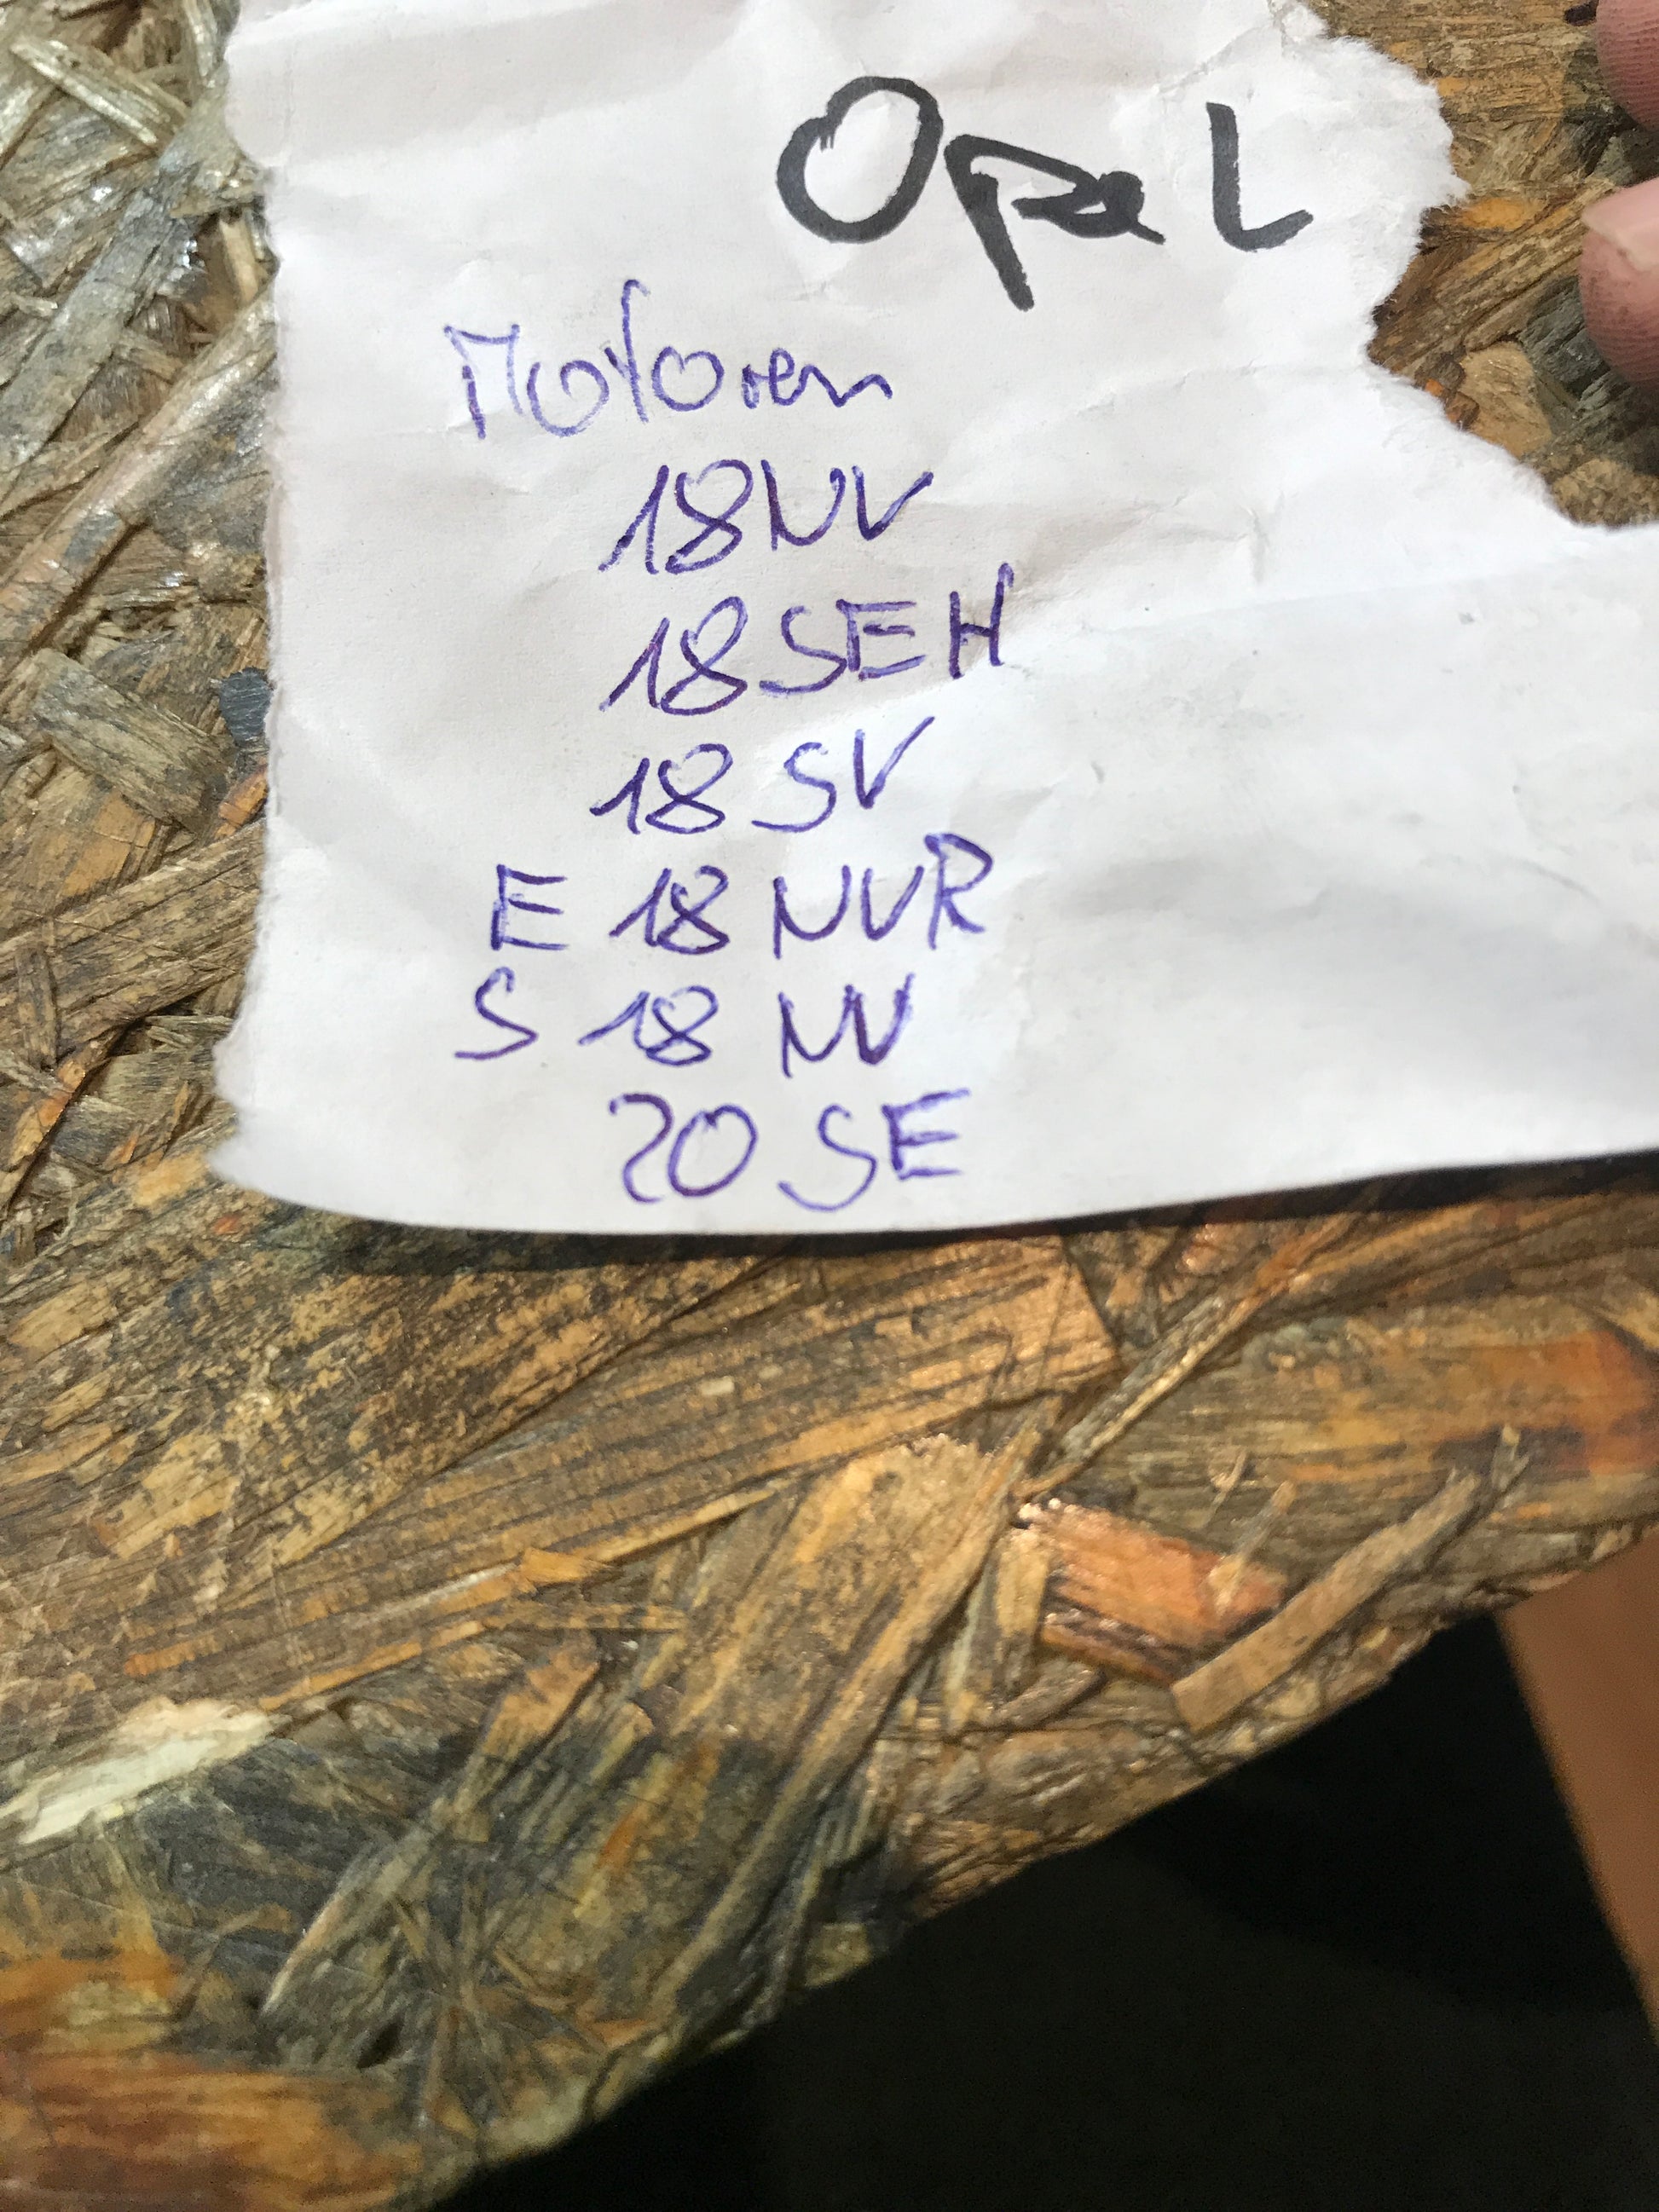 Opel
Motoren
18NV
18SEH
18 SV
E 18 NVR
S 18 NV
20 SE